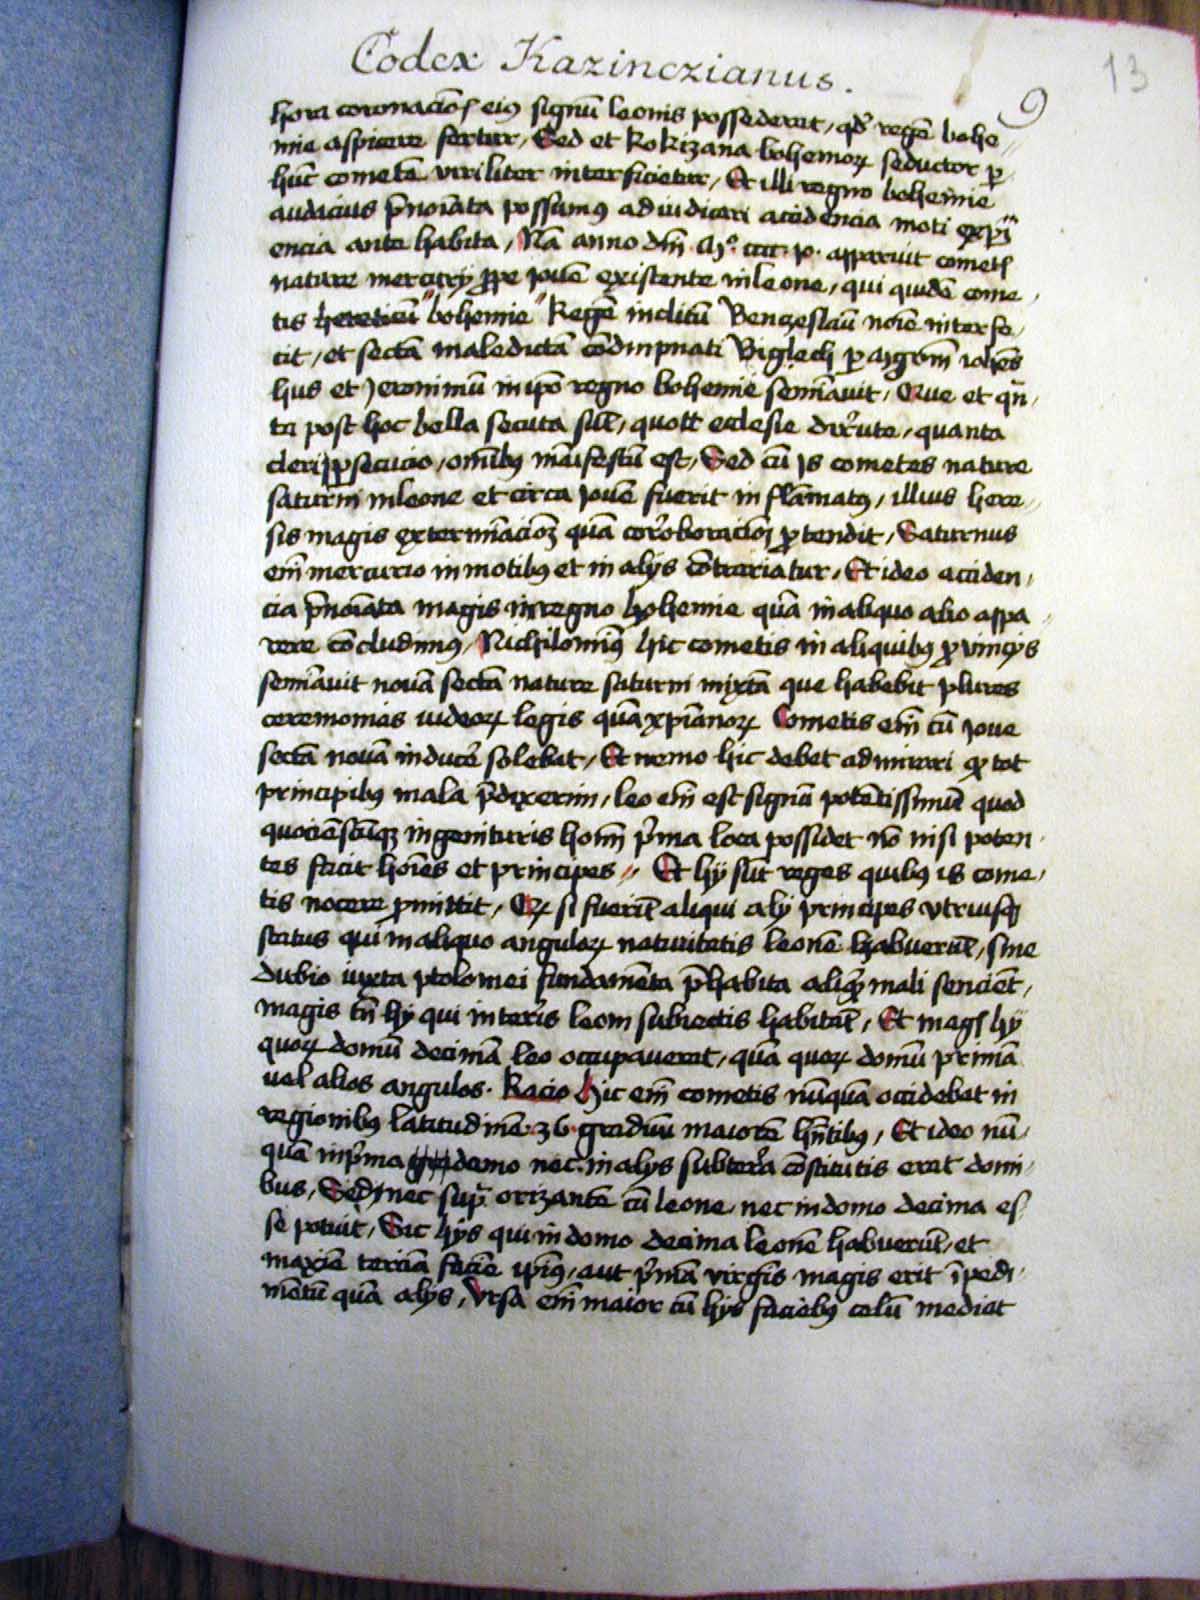 Codex Kazinczianus.
13
9
hora coronacioꝭ eiꝰ signū leonis possederet, qd regē bohe
mie aspicere fertur, Sed et Rokizana bohemoꝝ seductor ꝑ
hūc cometā viriliter interficietur, Et illi regno bohemie
audacius p̄noīata possumꝰ adiudicari accidencia moti exp̄i
encia ante habita, Nā anno dn̄i Mᵒ. cccc. xᵒ. apparuit cometꝭ
nature mercurij ꝓpe jouē existente in leone, qui quidē come
tis hereticū bohemie Regē inclitū Benczeslaū noīe interfe
cit, et sectā maledictā cōdinpnati Viglech ꝑ mgr̄m iohēs
hus et Jeronimū in ip̄o regno bohemie semīavit, Que et qn̄
ta post hoc bella secuta sūt, quott ecclesie dirute, quanta
cleri ꝑsecucio, om̄ibꝰ māifestū est, Sed cū js cometes nature
saturni in leone et circa jouē fuerit inflāmatꝰ, illius here
sis magis extermīacioꝫ quā corroboracioꝫ ꝓtendit, Saturnus
em̄ mercurio in motibꝰ et in alijs cōtrariatur, Et ideo acciden
cia p̄noīata magis in regno bohemie quā in aliquo alio appa
rere cōcludimꝰ, Nichilominꝰ hic cometis in aliquibꝰ ꝓvincijs
semīavit novā sectā nature saturni mixtā que habebit plures
ceremonias iudeoꝝ legis quā xp̄ianoꝝ Cometis em̄ cū joue
sectā novā inducē solebat, Et nemo hic debet admirari ꝙ tot
principibꝰ mala p̄dixerim, leo em̄ est signū potētissimū quod
quociēscūqꝫ in genituris hom̄ p̄ma loca possidet nō nisi poten
tes facit hoīes et principes, Et hij sūt reges quibꝰ is come
tis nocere ꝓmittit, Qꝝ si fuerīt aliqui alij principes vtriusqꝫ
status qui in aliquo anguloꝝ nativitatis leonē habuerūt, sine
dubio iuxta ptolomei fundamēta p̄habita aliqd mali sencient,
magis tn̄ hij qui in terrīs leoni subiectis habitāt, Et magꝭ hij
quoꝝ domū decimā leo occupaverat, quā quoꝝ domū primā
vel alios angulos. Racio hic em̄ cometis nūquā occidebat in
regionibꝰ latitudinē 36 graduū maiorē hn̄tibꝰ, Et ideo nū
quā in p̄ma domo nec in alijs subterra cōstitutis erat domi
bus, Sed nec sup̄ orizantē cū leone nec in domo decima es
se potuit, Sic hijs qui in domo decima leonē habuerūt, et
maxīe terciā faciē ip̄iꝰ, aut p̄mā virgīs magis erit īpedi
mētū quā alijs, Vrsa em̄ maior cū hijs faciebꝰ celū mediat